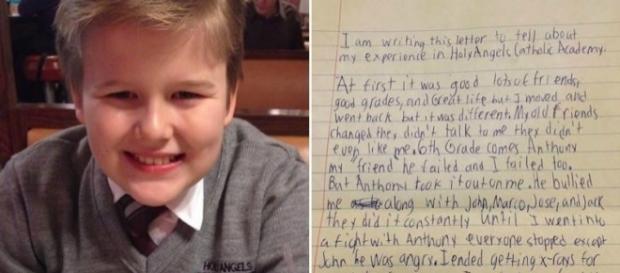 HOLY ANGELS
I am writing this letter to tell about
my experience in HolyAngels Catholic Academy.
At first it was good lots of friends,
good grades, and Great life but I moved and
went back but it was different. My old friends
changed they didn't talk to me they didn't
even like me. 6th Grade comes Anthony
my "friend" he failed and I failed too.
But Anthony took it out on me. he bullied
me along with John, Marco, Jose, and Jack
they did it constantly until I went into
a fight with Anthony everyone stopped except
John he was angry. I ended getting x-rays for